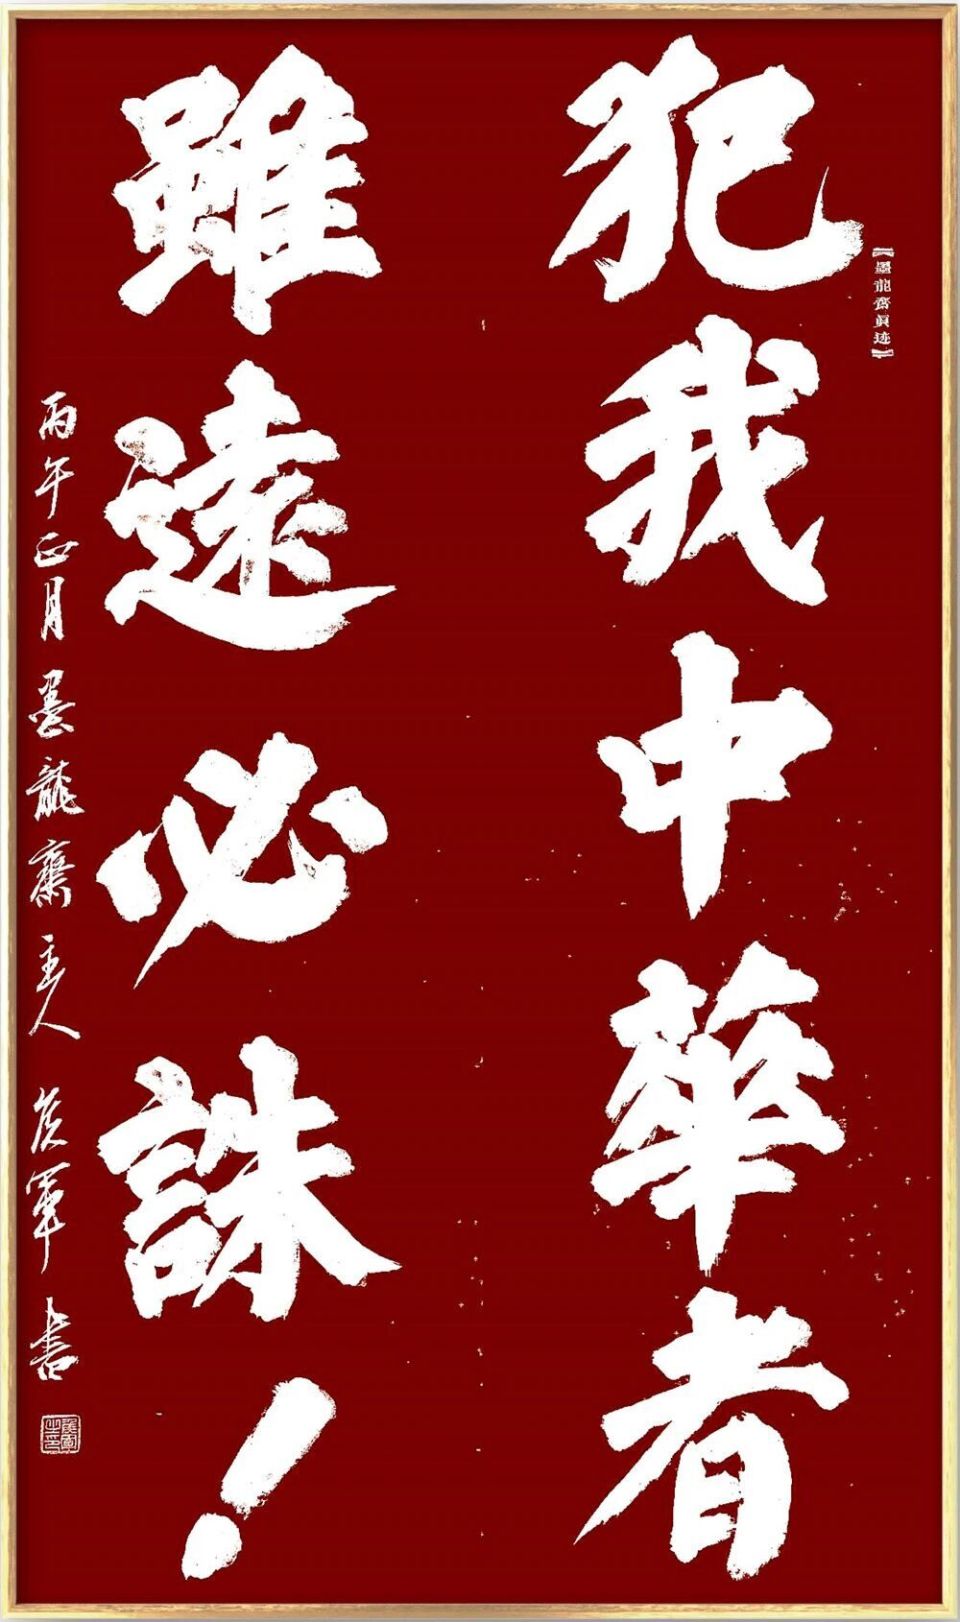 犯我中華者
雖遠必誅！
【墨龍齋真迹】
丙午正月墨龍齋主人侯軍書